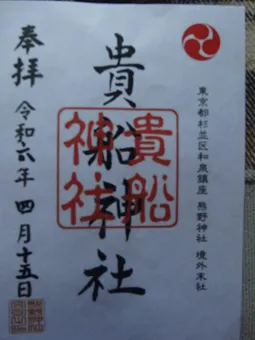 東京都杉並区和泉鎮座 熊野神社 境外末社
貴船神社
貴船
神社
奉拝
令和六年 四月十五日